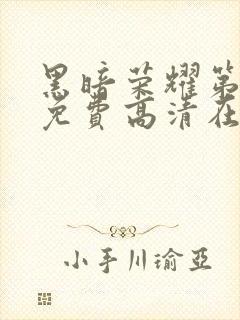 黑暗荣耀第
免费高清在
小手川瑜亞